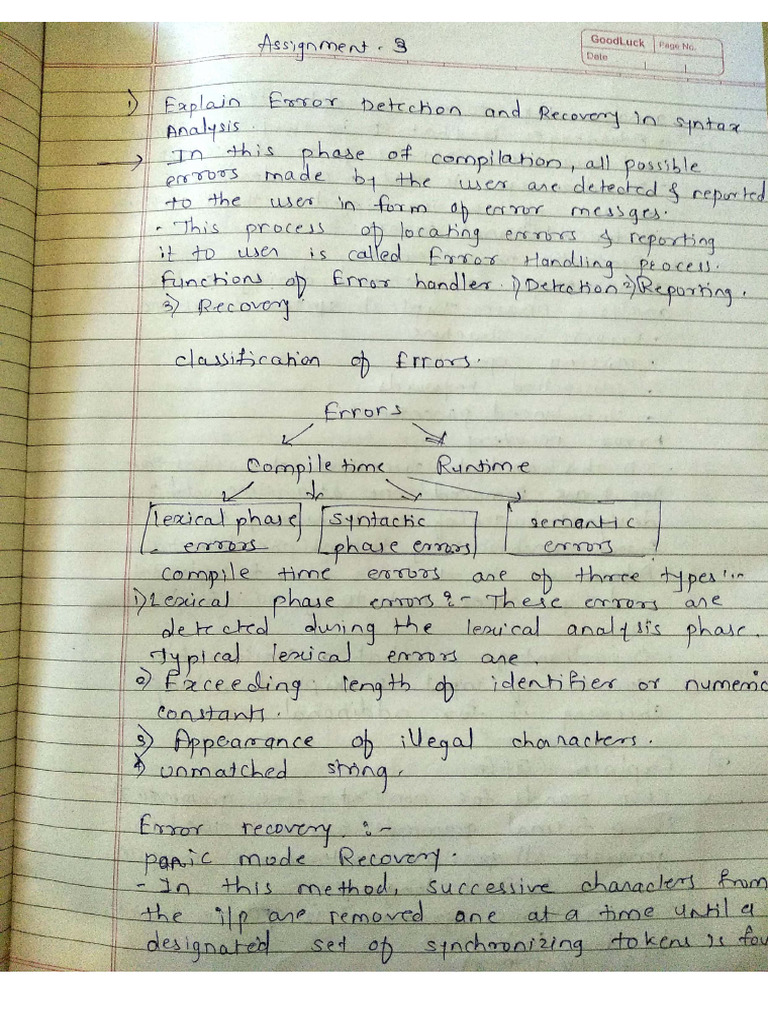 Assignment. 3
GoodLuck Page No.
Date
1) Explain Error Detection and Recovery in syntax
Analysis.
→ In this phase of compilation, all possible
errors made by the user are detected & reported
to the user in form of error messges.
- This process of locating errors & reporting
it to user is called Error Handling process.
Functions of Error handler 1) Detection 2) Reporting.
3) Recovery
classification of Errors.
Errors
Compile time Runtime
lexical phase errors
syntactic phase errors
semantic errors
compile time errors are of three types:-
1) Lexical phase errors:- These errors are
detected during the lexical analysis phase.
Typical lexical errors are.
Exceeding length of identifier or numeric
constants.
3) Appearance of illegal characters.
4) unmatched string.
Error recovery :-
panic mode Recovery.
- In this method, successive characters from
the i/p are removed one at a time until a
designated set of synchronizing tokens is fou